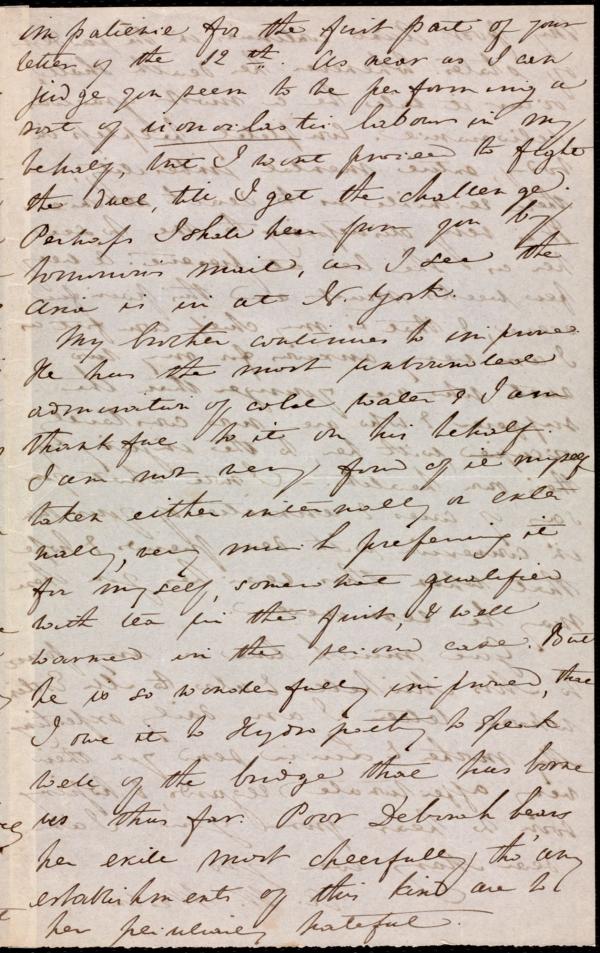 impatience for the first part of your
letter of the 12th. As near as I can
judge you seem to be performing a
sort of iconoclastic labour in my
behalf, but I wont proceed to fight
the duel, till I get the challenge.
Perhaps I shall hear from you by
tomorrow's mail, as I see the
Asia is in at N. York.
My brother continues to improve.
He has the most unbounded
admiration of cold water, & I am
thankful to it on his behalf.
I am not very fond of it myself
taken either internally or exter
nally, very much preferring it
for myself, somewhat qualified
with tea in the first, & well
warmed in the second case. But
he is so wonderfully improved, that
I owe it to Hydropathy to speak
well of the bridge that has borne
us thus far. Poor Deborah bears
her exile most cheerfully, tho' any
establishments of this kind are to
her peculiarly hateful.